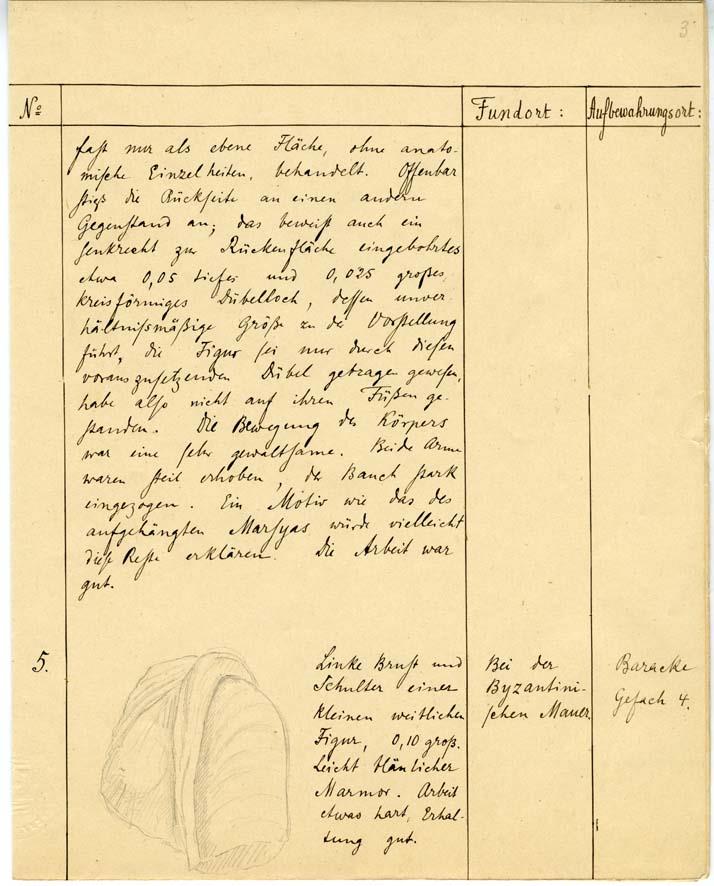 3
No Fundort: Aufbewahrungsort:
fast nur als ebene Fläche, ohne anato-
mische Einzelheiten, behandelt. Offenbar
stieß die Rückseite an einen andern
Gegenstand an; das beweist auch ein
senkrecht zur Rückenfläche eingebohrtes
etwa 0,05 tiefes und 0,025 großes,
kreisförmiges Dübelloch, dessen unver-
hältnißmäßige Größe zu der Vorstellung
führt, die Figur sei nur durch diesen
vorauszusetzenden Dübel getragen gewesen,
habe also nicht auf ihren Füßen ge-
standen. Die Bewegung des Körpers
war eine sehr gewaltsame. Beide Arme
waren steil erhoben, der Bauch stark
eingezogen. Ein Motiv wie das des
aufgehängten Marsyas würde vielleicht
diese Reste erklären. Die Arbeit war
gut.
5.
Linke Brust und
Schulter einer
kleinen weiblichen
Figur, 0,10 groß.
Leicht bläulicher
Marmor. Arbeit
etwas hart, Erhal-
tung gut.
Bei der
Byzantini-
schen Mauer.
Baracke
Gefach 4.